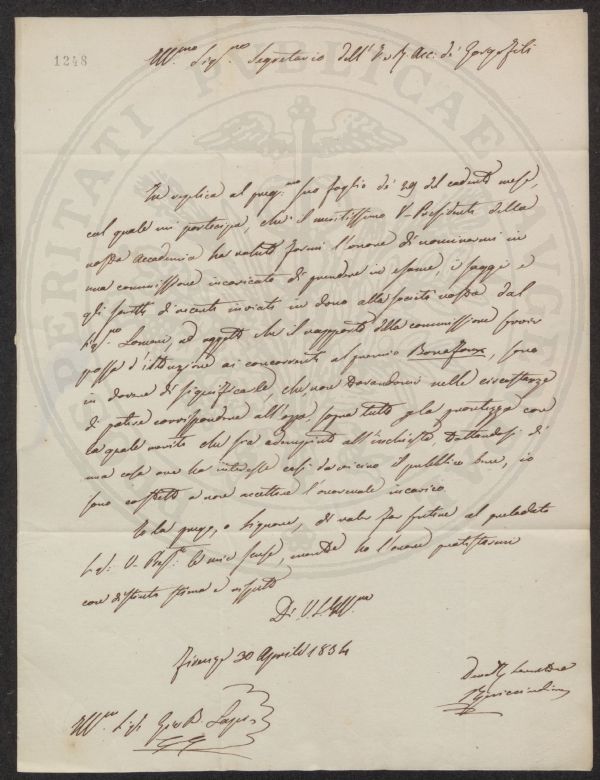 1248
Ill.mo Sig.r Segretario dell' I e R. Acc. de' Georgofili
In replica al preg.mo suo foglio de' 29 del cadente mese,
col quale mi partecipa, che il meritissimo V-Presidente della
nostra Accademia ha voluto farmi l'onore di nominarmi in
una commissione incaricata di prendere in esame, i saggi e
gli scritti recenti inviati in dono alla società nostra dal
Sig.r ad oggetto che il rapporto della commissione
possa d'istruzione ai concorrenti al premio Bonafoux, sono
in dovere di significarle, che, non trovandomi nelle circostanze
di potere corrispondere all'uopo, sopra tutto p la prontezza con
la quale merita che sia adempiuto all'inchiesta, trattandosi di
una cosa ove ha interesse così da vicino il pubblico bene, io
sono costretto a non accettare l'onorevole incarico
Io la prego, o Signore, di voler far gustare al prelodato
Sig. V-Pres.te le mie scuse, mentre ho l'onore protestarmi
con distinta stima e rispetto
Di V.S. Ill.ma
Firenze 30 Aprile 1834
Dev.
Ill.mo Sig.
PROSPERITATI PUBLICAE AUGENDAE